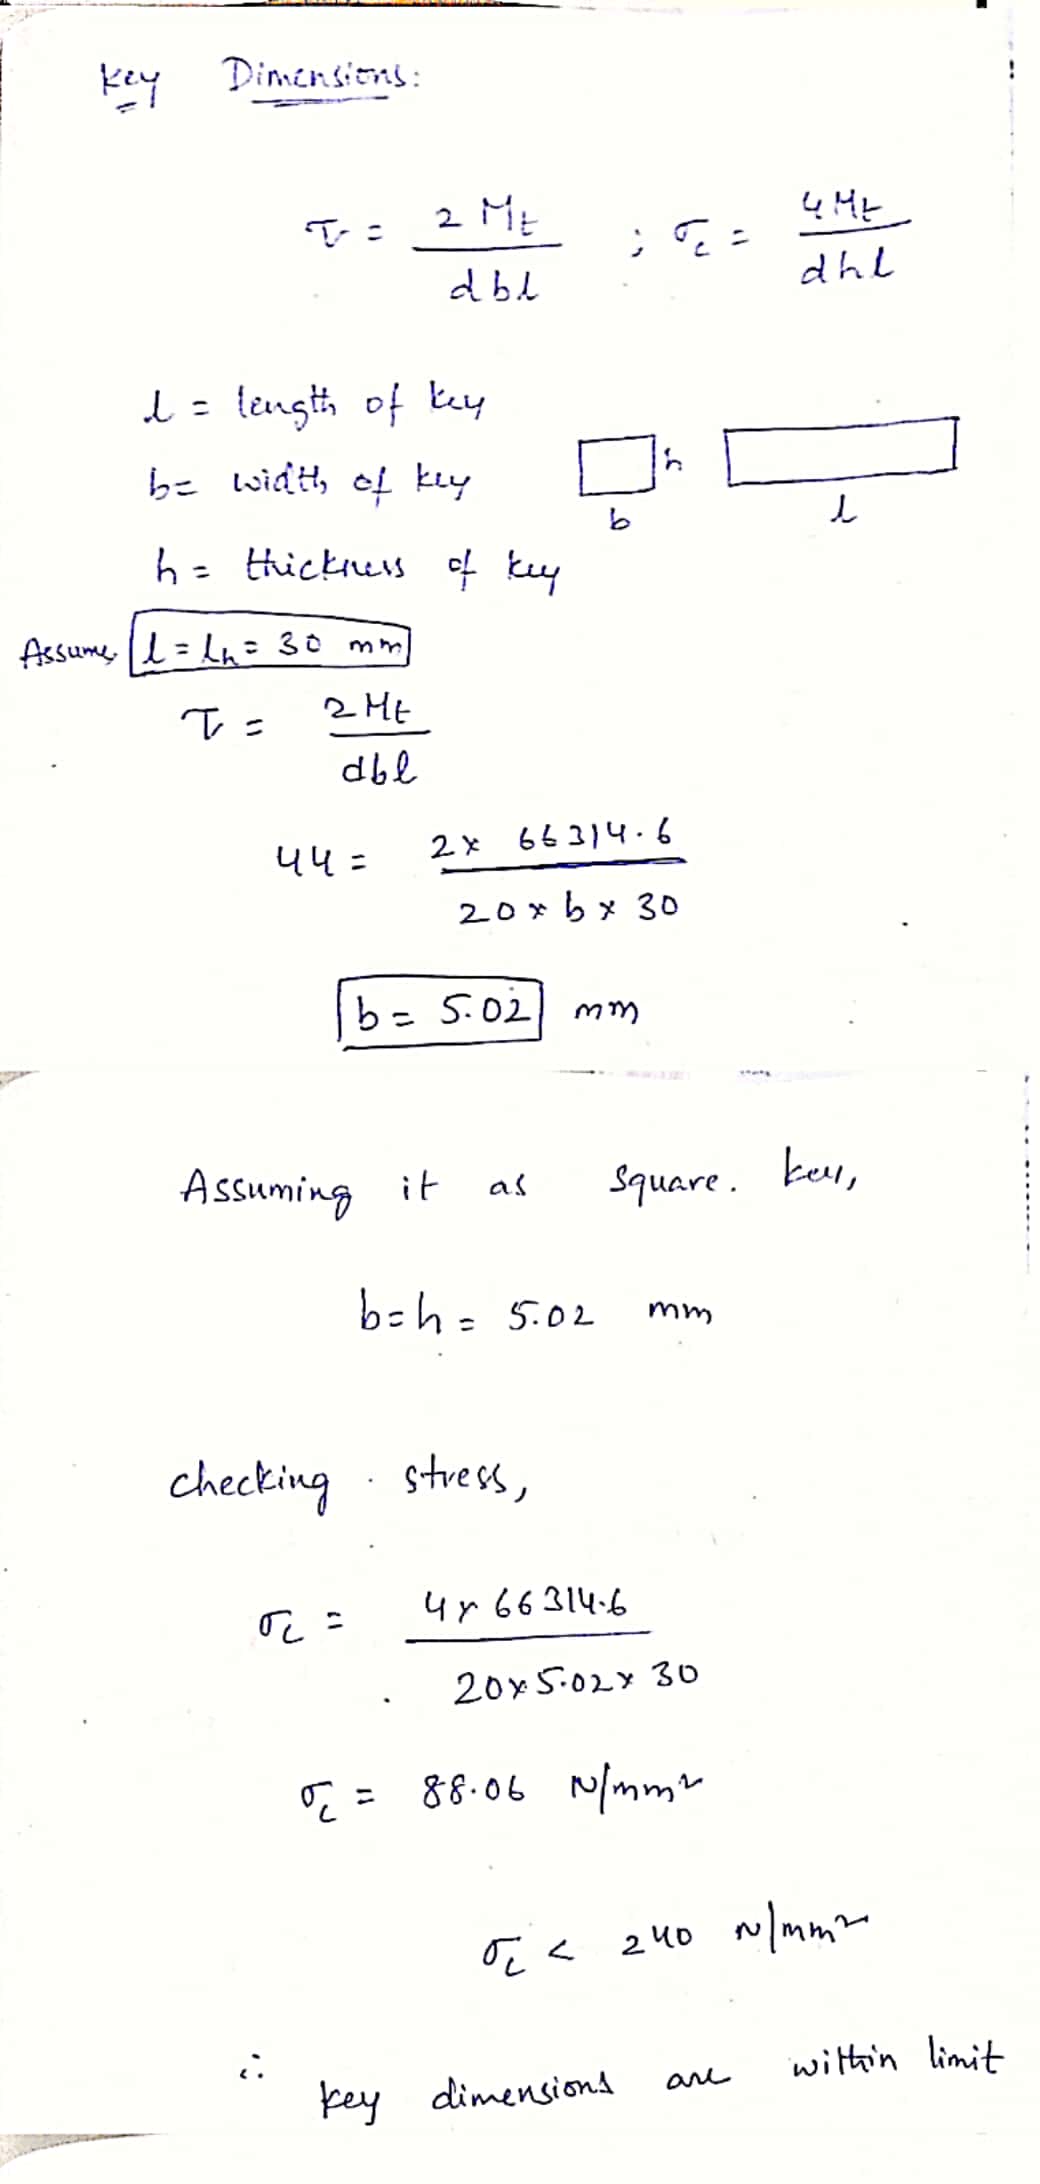 Key Dimensions:
τ = 2 Mt / dbl ; σc = 4Mt / dhl
l = length of key
b = width of key
h
b
l
h = thickness of key
Assume, l = lh = 30 mm
τ = 2Mt / dbl
44 = 2 × 66314.6 / 20 × b × 30
b = 5.02 mm
Assuming it as square. key,
b=h = 5.02 mm
checking stress,
σc = 4 × 66314.6 / 20 × 5.02 × 30
σc = 88.06 N/mm²
σc < 240 N/mm²
∴ key dimensions are within limit